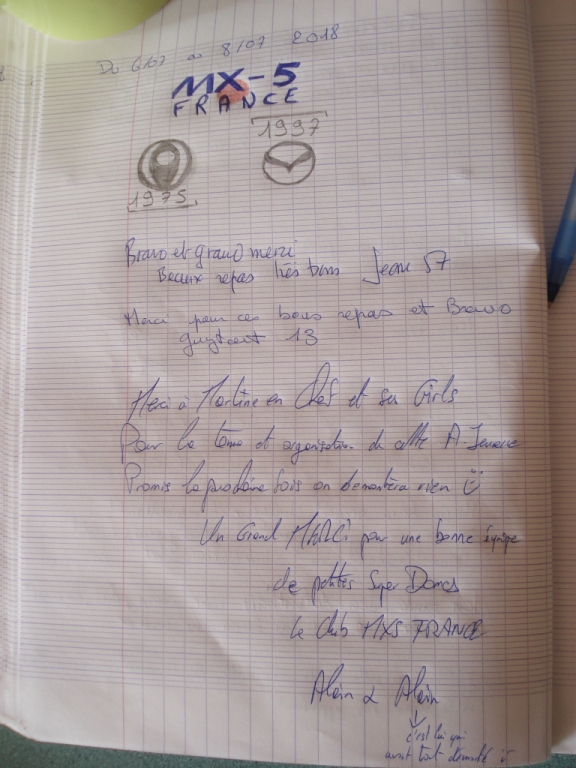 Du 6/07 au 8/07 2018
MX-5
FRANCE
1997
1975
Bravo et grand merci
Beaux repas très bons Jeane 57
Merci pour ces bons repas et Bravo
13
Merci à Martine en Chef et ses Girls
Pour la tenue et organisation de cette A-
Promis la prochaine fois on demontera rien
Un Grand MERCi pour une bonne équipe
de petites Super Dames
Le Club MX5 FRANCE
Alain & Alain
c'est lui qui
avait tout démonté